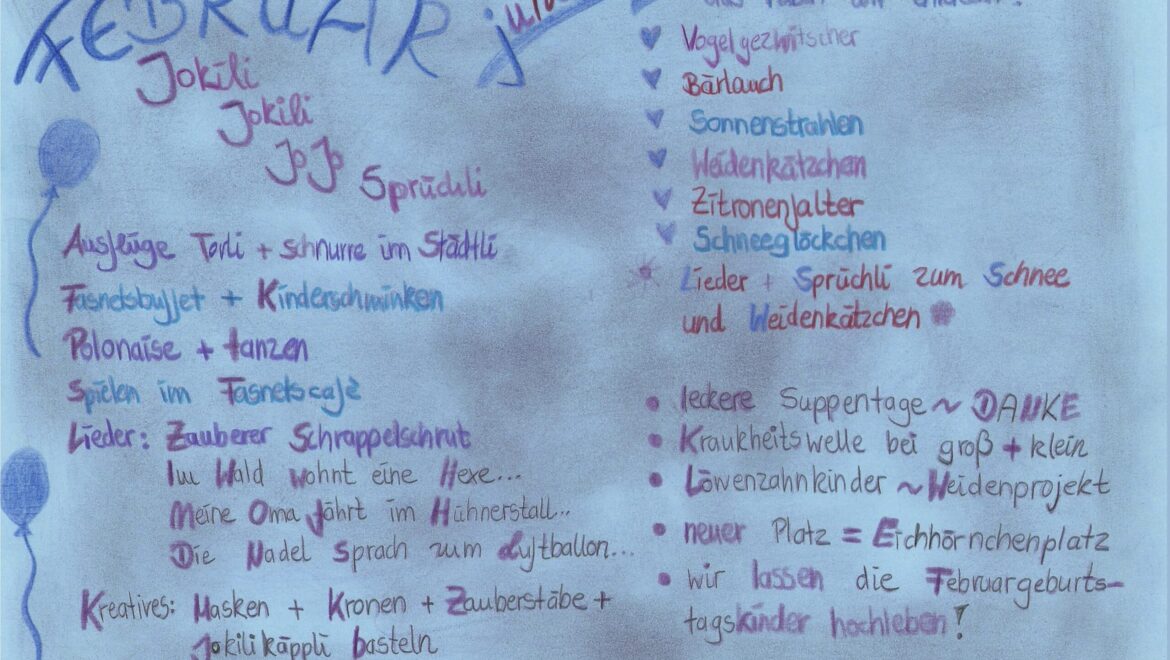 FEBRUAR
Jokili
Jokili
JoJo
Sprüchli
Ausflüge Torli + schnurre im Städtli
Fasnetsbuffet + Kinderschminken
Polonaise + tanzen
Spielen im Fasnetscafè
Lieder: Zauberer Schrappelschrut
Im Wald wohnt eine Hexe...
Meine Oma fährt im Hühnerstall...
Die Nadel sprach zum Luftballon...
Kreatives: Masken + Kronen + Zauberstäbe +
Jokilikäppli basteln
Vogelgezwitscher
Bärlauch
Sonnenstrahlen
Weidenkätzchen
Zitronenfalter
Schneeglöckchen
Lieder + Sprüchli zum Schnee
und Weidenkätzchen
• leckere Suppentage ~ DANKE
• Krankheitswelle bei groß + klein
• Löwenzahnkinder ~ Weidenprojekt
• neuer Platz = Eichhörnchenplatz
• wir lassen die Februargeburts-
tagskinder hochleben!